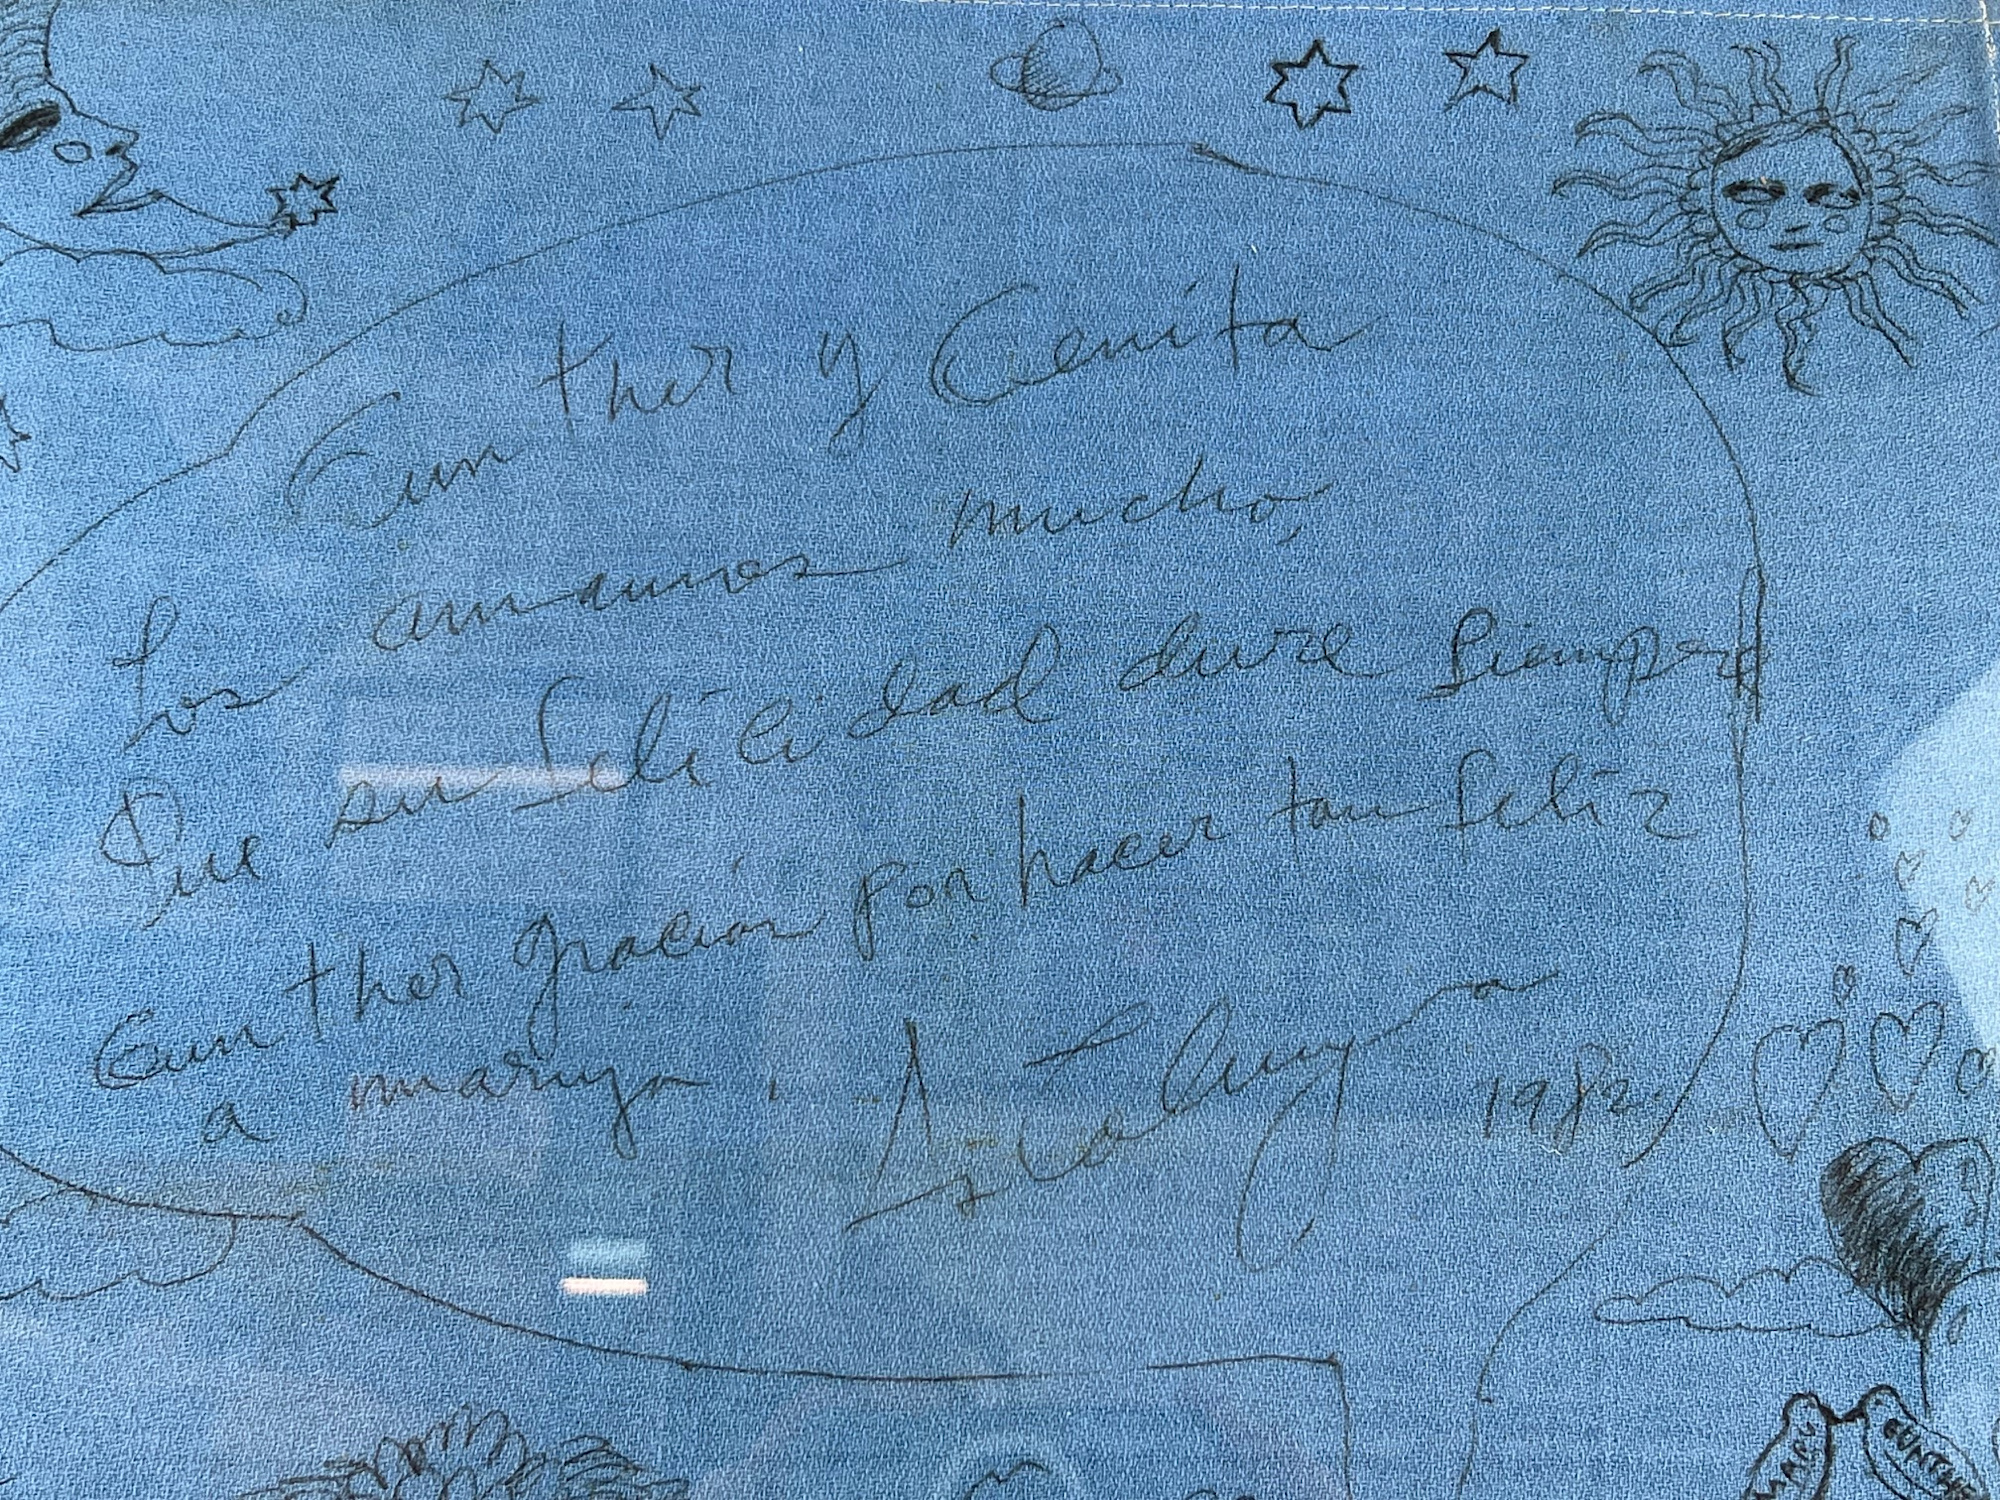 Gunther y Cenita
los amamos mucho,
Que su felicidad dure siempre
Gunther gracias por hacer tan feliz
a maruja.
1982.
MARU
GUNTHE